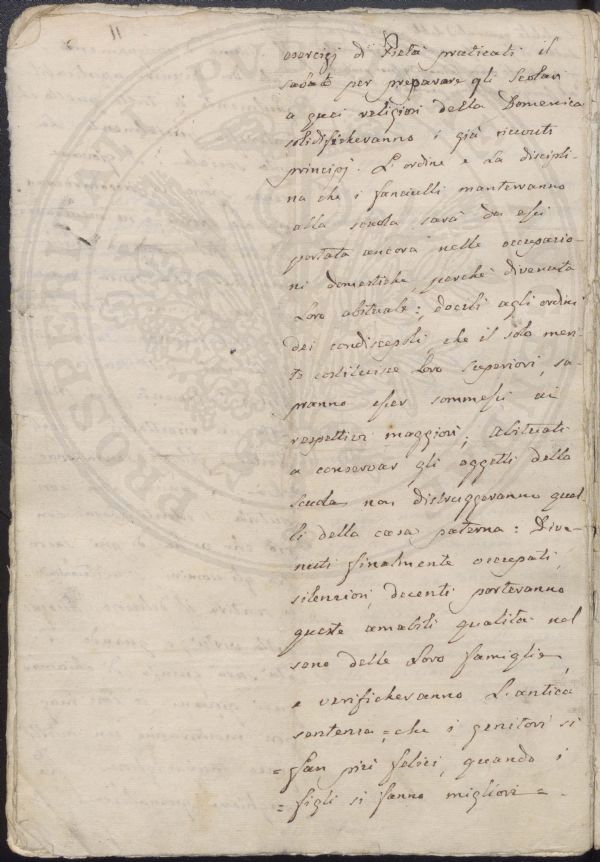 11
esercizj di Pietà praticati il
sabato per preparare gli Scolari
a quei religiosi della Domenica
solidificheranno i già ricevuti
principj. L'ordine e La discipli-
na che i fanciulli manterranno
alla scuola sarà da essi
portata ancora nelle occupazio-
ni domestiche, perchè divenuta
Loro abituale; docili agli ordini
dei condiscepoli, che il solo meri-
to costituisce Loro Superiori, sa-
pranno esser sommessi ai
respettivi maggiori; Abituati
a conservar gli oggetti della
Scuola non distruggeranno quel-
li della casa paterna: Dive-
nuti finalmente occupati,
silenziosi, decenti porteranno
queste amabili qualità nel
seno delle Loro famiglie,
e verificheranno L'antica
sentenza, che i genitori si
=fan più felici, quando i
=figli si fanno migliori=.